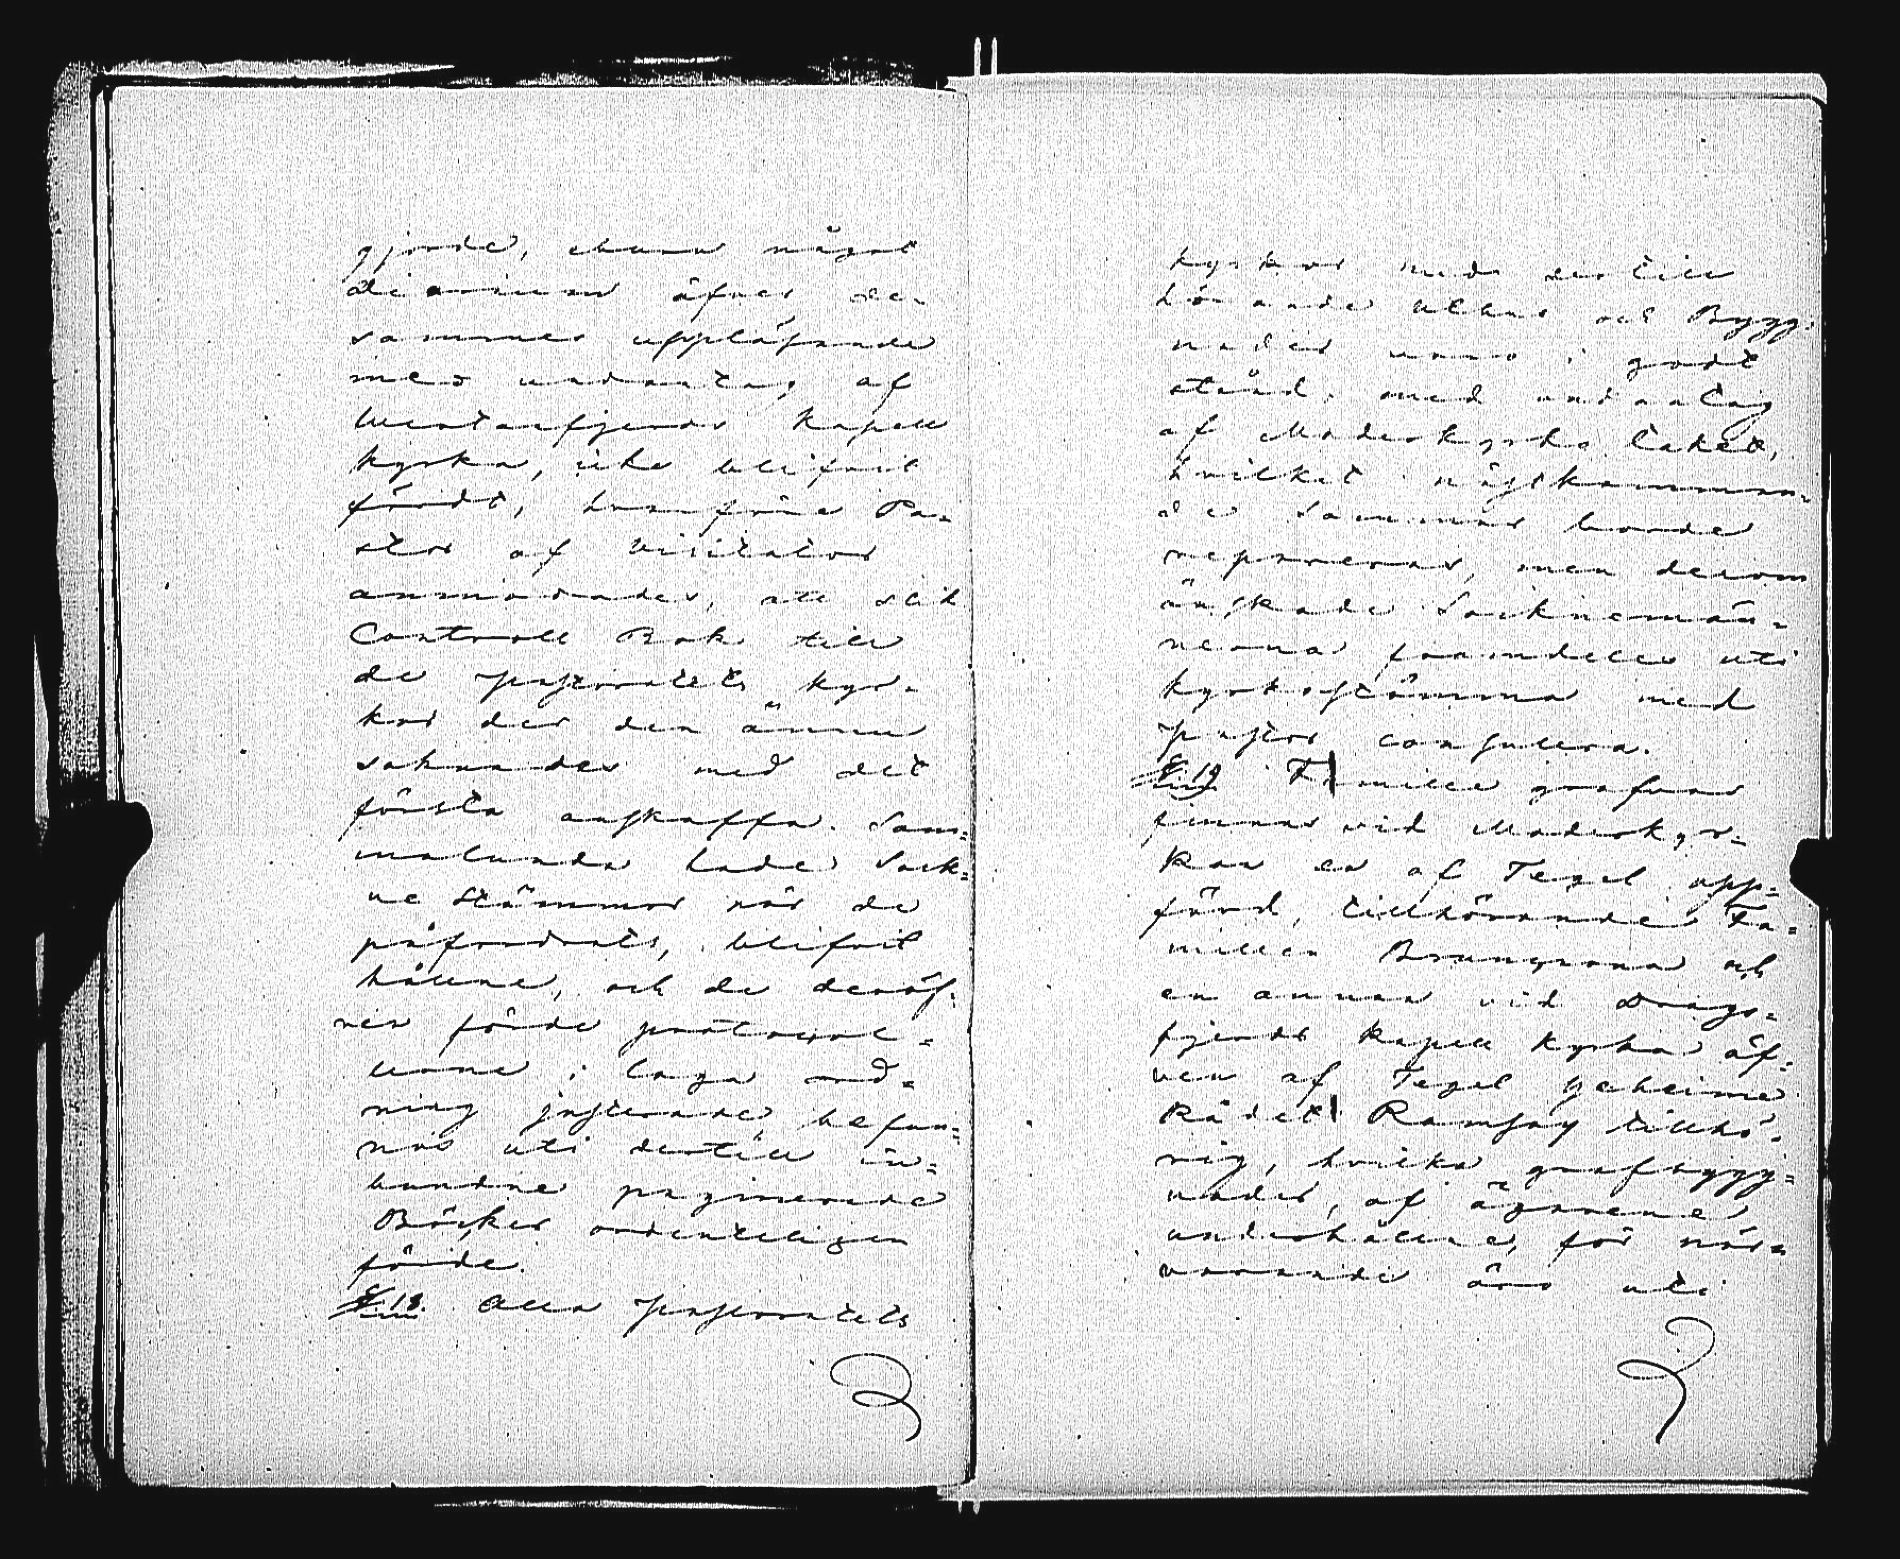 gjorde, ehuru något
diarium öfver der
sammes uppläsande
med undantag af
Westanfjerds Kapell
kyrka, icke blifvit
fördt, hvarföre Pa-
stor af Visitator
anmodades, att slik
Controll Bok till
de pastoratets kyr-
kor der den ännu
saknades med det
första anskaffa. Sam-
malunda hade Sock-
ne Stämmor när de
påfordrats, blifvit
hållne, och de deröf-
ver förde protocol-
lerne i laga ord-
ning justerade, befun-
nos uti dertill in-
bundne paginerade
Böcker ordenteligen
förde.
§ 18. Alla pastoratets
kyrkor med dertill
hörande uthus och Bygg-
nader voro i godt
stånd, med undantag
af Moderkyrko taket,
hvilket nästkomman-
de Sommar borde
repareras, men derom
önskade Socknemän-
nerna framdeles uti
kyrkostämma med
Pastor consulera.
§ 19 Famille grafvar
finnas vid Moderkyr-
kan en af Tegel upp-
förd, tillhörande Fa-
millen Bruncrona och
en annan vid Drags-
fjerds Kapell kyrka äf-
ven af Tegel Geheime
Rådet Ramsay tillhö-
rig, hvilka grafbygg-
nader, af ägarene
underhållne, för när-
varande äro uti